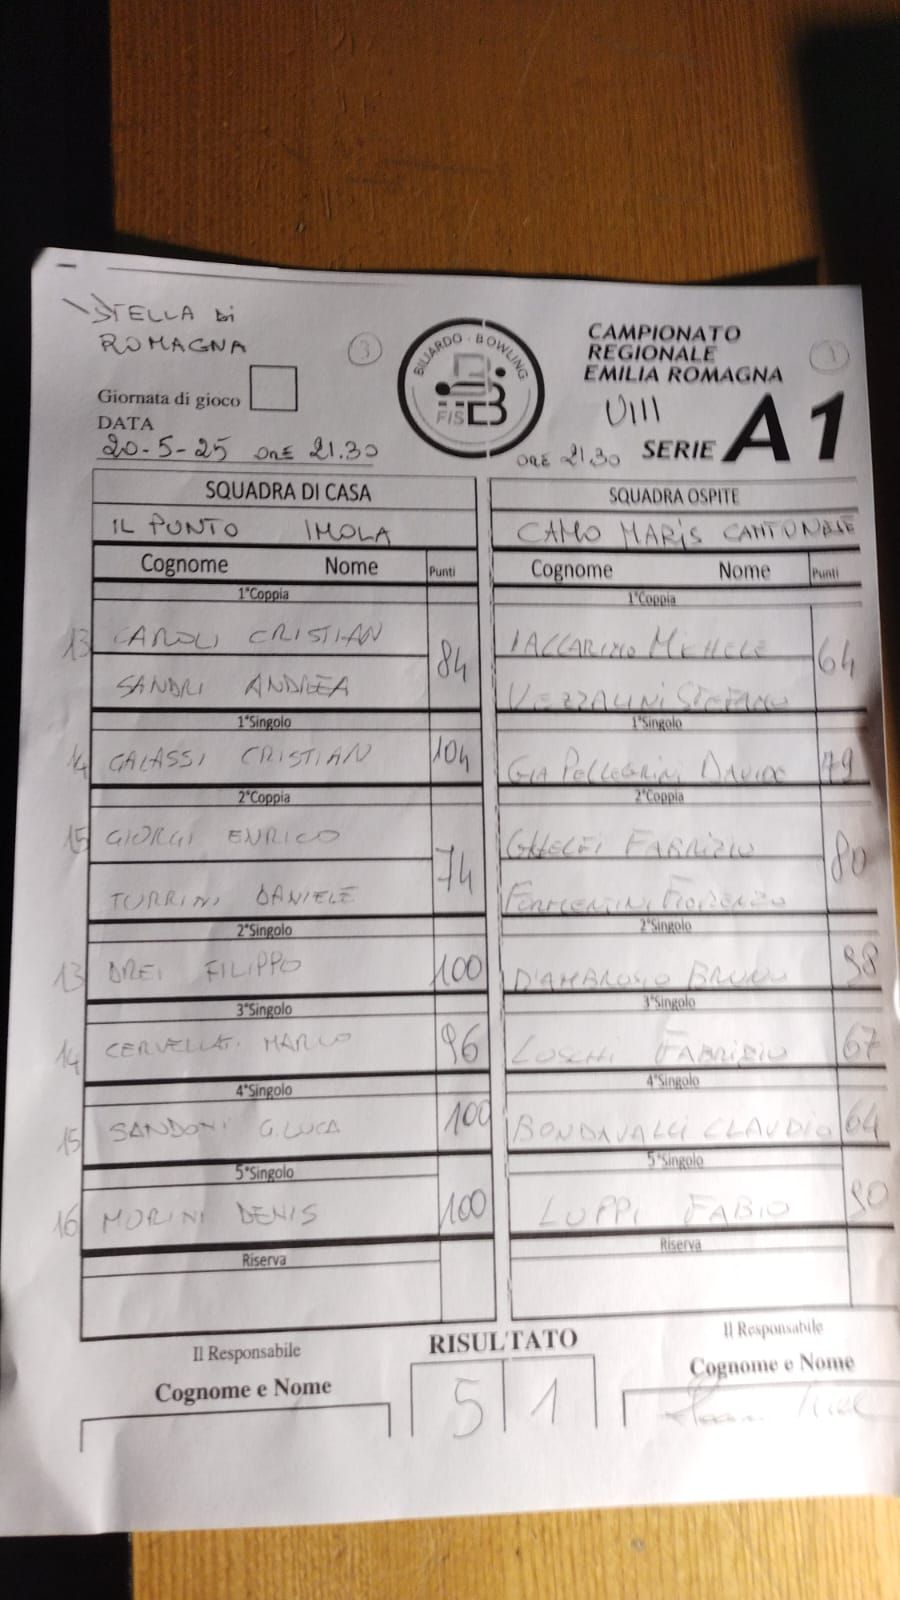 STELLA Di
ROMAGNA
3
Giornata di gioco
DATA
20-5-25 ORE 21.30
BILIARDO - BOWLING
FISBB
CAMPIONATO
REGIONALE
EMILIA ROMAGNA
1
VIII
ORE 21.30 SERIE A1
SQUADRA DI CASA
IL PUNTO IMOLA
Cognome Nome Punti
1°Coppia
13 CAROLI CRISTIAN
84
SANDRI ANDREA
1°Singolo
14 GALASSI CRISTIAN 104
2°Coppia
15 GIORGI ENRICO
74
TURRINI DANIELE
2°Singolo
13 DREI FILIPPO 100
3°Singolo
14 CERVELLATI MARCO 96
4°Singolo
15 SANDONI G.LUCA 100
5°Singolo
16 MORINI DENIS 100
Riserva
SQUADRA OSPITE
CAMO MARiS CANTONESE
Cognome Nome Punti
1°Coppia
IACCARINO MICHELE
64
VEZZALINI STEFANO
1°Singolo
PELLEGRINI DAVIDE 79
2°Coppia
GHELFI FABRIZIO
80
FORMENTINI FIORENZO
2°Singolo
D'AMBROSIO BRUNO 98
3°Singolo
LOSCHI FABRIZIO 67
4°Singolo
BONDAVALLI CLAUDIO 64
5°Singolo
LUPPI FABIO 90
Riserva
Il Responsabile
Cognome e Nome
RISULTATO
5 1
Il Responsabile
Cognome e Nome